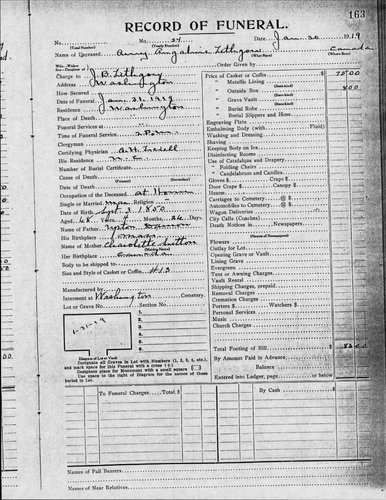 163
RECORD OF FUNERAL.
No. No. 24 Date Jan 30 1919
(Total Number) (Yearly Number)
Name of Deceased Amy Angeline Lethgon Canada
(What Race) (Where Born)
Order Given by
Charge to J. B. Lethgon
Address Washington
How Secured
Date of Funeral Jan 31, 1919
Residence Washington
Place of Death
Funeral Services at
Time of Funeral Service 2 P.m.
Clergyman
Certifying Physician
His Residence N. C.
Number of Burial Certificate
Cause of Death
Date of Death
Occupation of the Deceased at Home
Single or Married Religion
Date of Birth Sept 3 1850
Aged 68 Years Months 26 Days
Name of Father
His Birthplace
Name of Mother Charolotte Sutton
(Maiden Name)
Her Birthplace Canada
Body to be shipped to
Size and Style of Casket or Coffin #13
Manufactured by
Interment at Washington Cemetery.
Lot or Grave No.
1-31-19
1.
2.
3.
4.
5.
6.
7.
8.
Diagram of Lot or Vault
Designate all Graves in Lot with Numbers (1, 2, 3, 4, etc.), and mark space for this Funeral with a cross (+)
Designate place for Monument with a small square
Use space to the right of Diagram for the names of those buried in Lot.
Price of Casket or Coffin 75 00
" Metallic Lining
" Outside Box 8 00
" Grave Vault
" Burial Robe
" Burial Slippers and Hose
Engraving Plate
Embalming Body (with Fluid)
Washing and Dressing
Shaving
Keeping Body on Ice
Disinfecting Rooms
Use of Catafalque and Drapery
" Folding Chairs
" Candelabrum and Candles
Gloves $ Crape $
Door Crape $ Canopy $
Hearse
Carriages to Cemetery @ $
Automobiles to Cemetery @ $
Wagon Deliveries
City Calls (Coaches)
Death Notices in Newspapers
(Names of Newspapers)
Flowers
Outlay for Lot
Opening Grave or Vault
Lining Grave
Evergreen
Tent or Awning Charges
Vault Rental
Shipping Charges, prepaid
Removal Charges
Cremation Charges
Porters $ Watchers $
Personal Services
Music
Church Charges
Total Footing of Bill $ 83 00
By Amount Paid in Advance
Balance
Entered into Ledger, page or below.
To Funeral Charges, Total $
By Cash $
Names of Pall Bearers
Names of Near Relatives